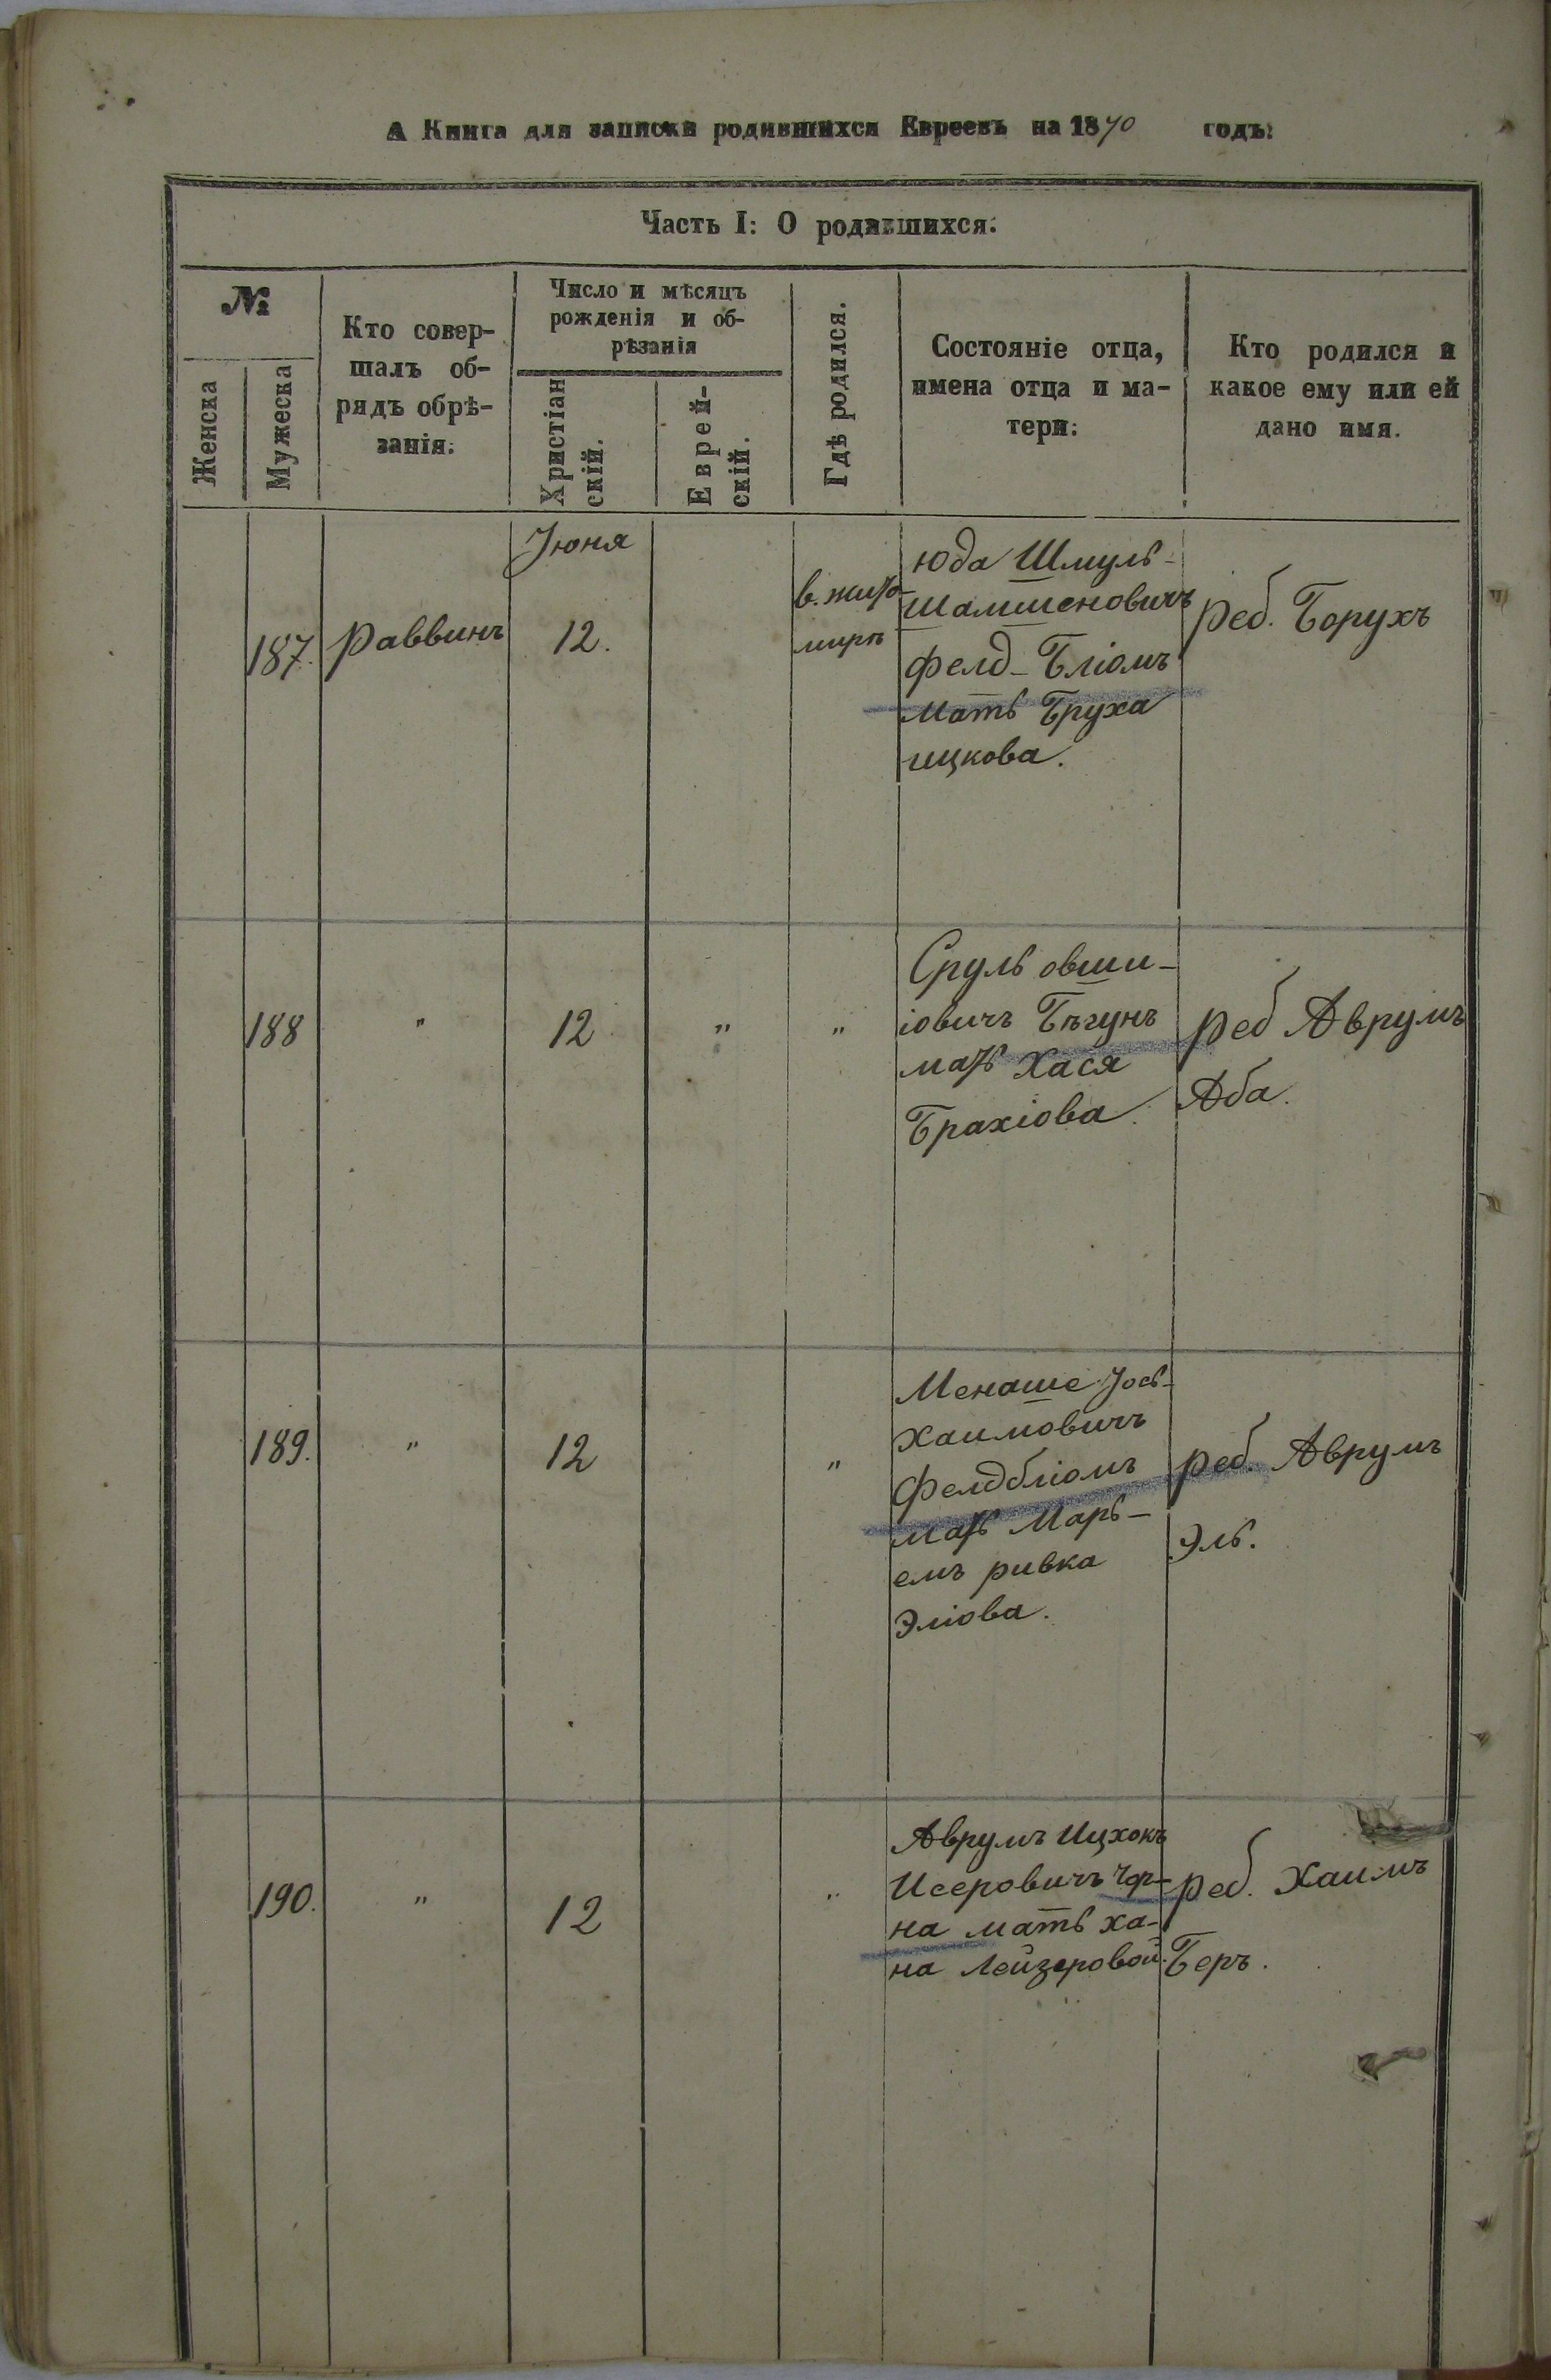 А Книга для записки родившихся Евреевъ на 1870 годъ:
Часть I: О родившихся.
№
Женска
Мужеска
Кто совер-
шалъ об-
рядъ обрѣ-
занія.
Число и мѣсяцъ
рожденія и об-
рѣзанія
Христіан
скій.
Еврей-
скій.
Гдѣ родился.
Состояніе отца,
имена отца и ма-
тери.
Кто родился и
какое ему или ей
дано имя.
187.
Раввинъ
Іюня
12.
в. жито-
мирѣ
юда Шмуль-
Шамшеновичъ
Фелд-Бліомъ
мать Бруха
ицкова.
реб. Борухъ
188
"
12
"
"
Сруль овши-
іовичъ Бѣгунъ
мать Хася
Брахіова.
реб Аврумъ
Аба.
189.
"
12
"
Менаше Іось-
Хаимовичъ
Фелдбліомъ
мать Марь-
емъ ривка
Эліова.
реб. Аврумъ
Эль.
190.
"
12
"
Аврумъ Ицхокъ
Исеровичъ Чор-
на мать ха-
на Лейзеровой.
реб. Хаимъ
Беръ.